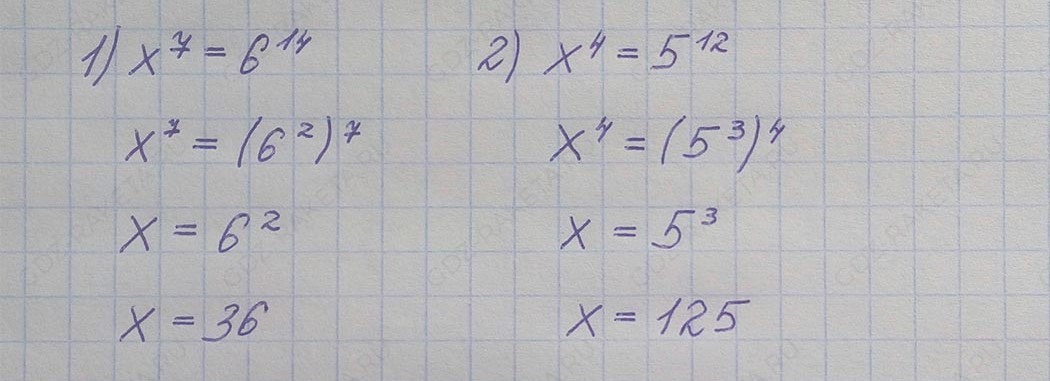 1) x⁷ = 6¹⁴
x⁷ = (6²)⁷
x = 6²
x = 36
2) x⁴ = 5¹²
x⁴ = (5³)⁴
x = 5³
x = 125